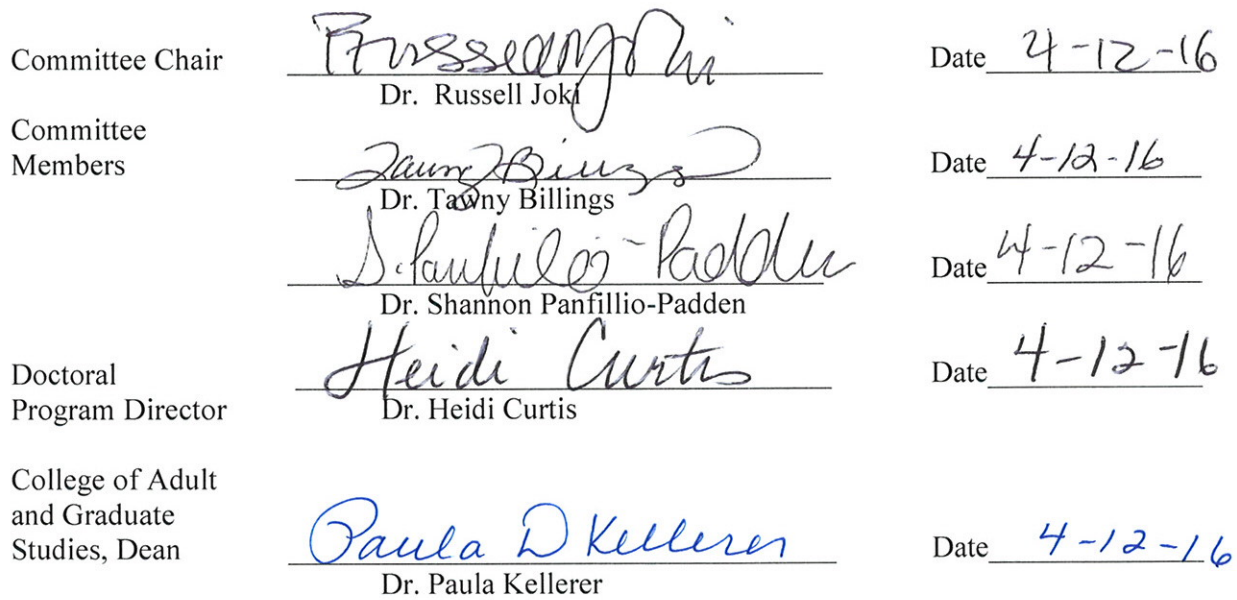 Committee Chair Russell Joki Date 4-12-16
Dr. Russell Joki
Committee
Members Tawny Billings Date 4-12-16
Dr. Tawny Billings
S. Panfilio-Padden Date 4-12-16
Dr. Shannon Panfillio-Padden
Doctoral Heidi Curtis Date 4-12-16
Program Director
Dr. Heidi Curtis
College of Adult
and Graduate
Studies, Dean Paula D Kellerer Date 4-12-16
Dr. Paula Kellerer